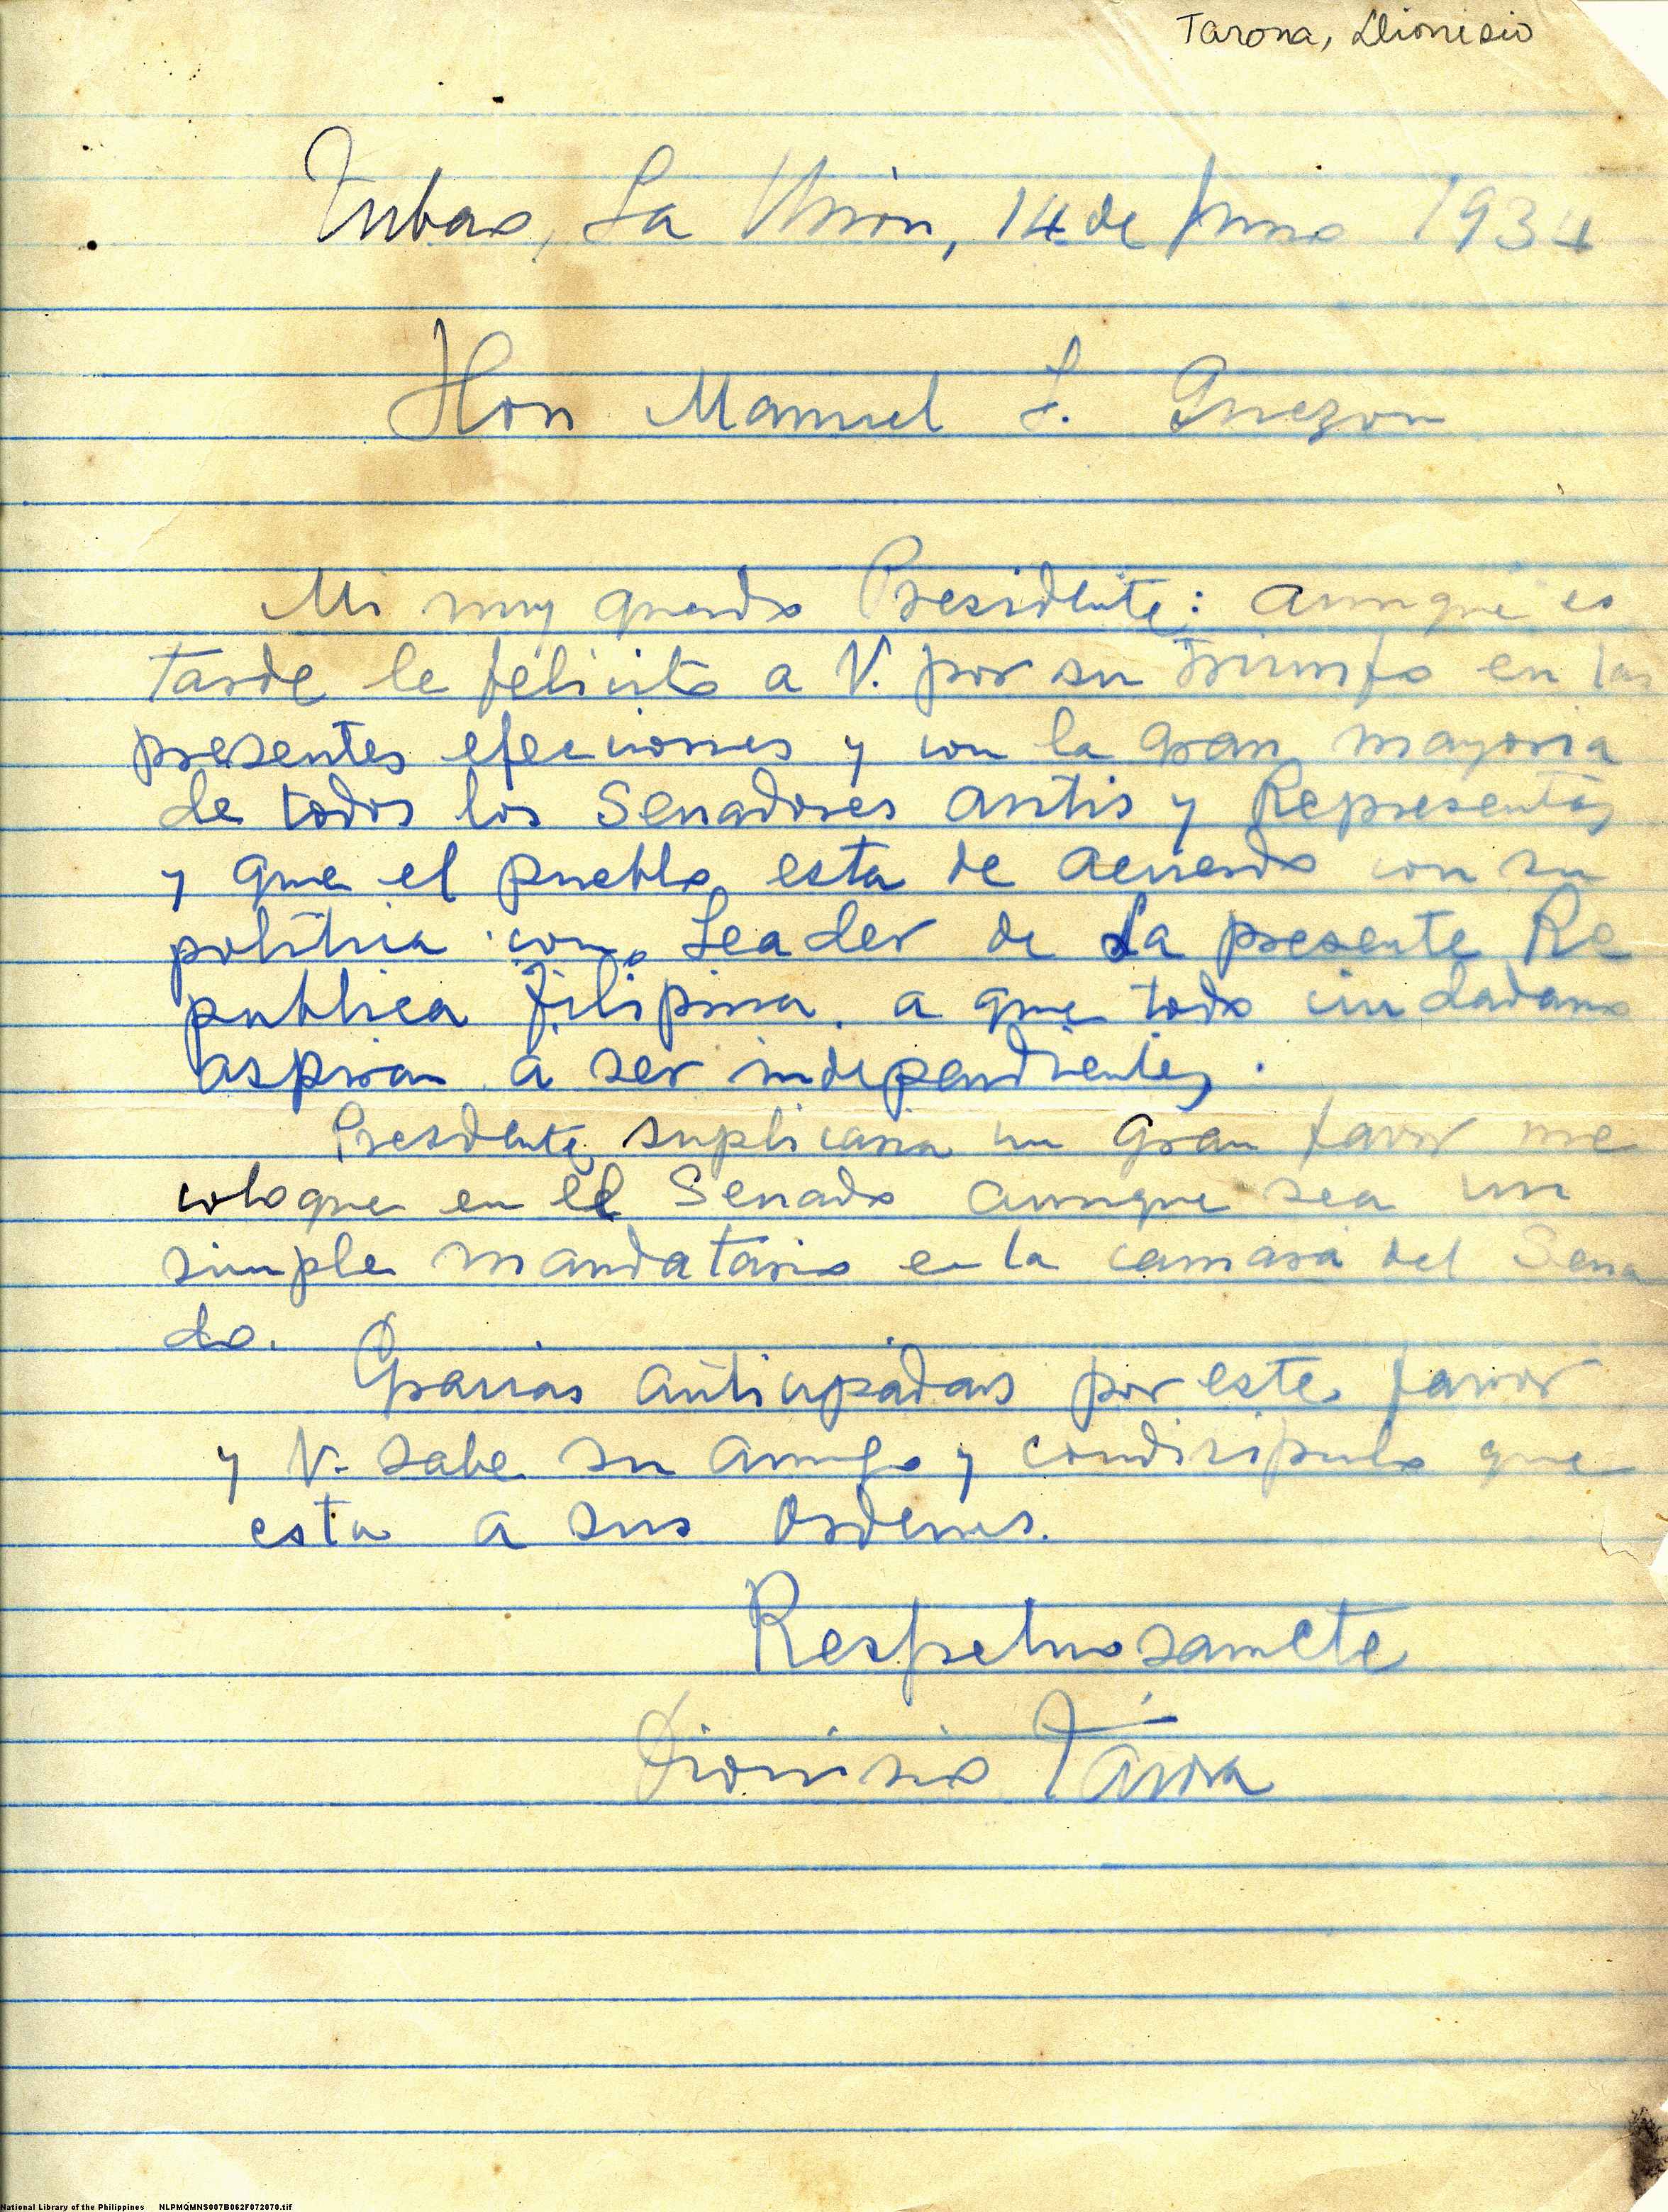 Tarona, Dionisio
Tubao, La Union, 14 de Junio 1934
Hon Manuel L. Quezon
Mi muy querido Presidente: aunque es
tarde le felicito a V. por su triunfo en las
presentes elecciones y con la gran mayoria
de todos los Senadores antis y Representes
y que el pueblo esta de acuerdo con su
politica como Leader de La presente Re
publica Filipina. a que todo ciudadano
aspiran a ser independientes.
Presidente, suplicaria un gran favor me
coloque en el Senado aunque sea un
simple mandatario en la camara del Sena
do.
Gracias anticipadas por este favor
y V. sabe su amigo y condicipulo que
esta a sus Ordenes.
Respetuosamente
Dionisio
National Library of the Philippines NLPMQMNS007B062F072070.tif